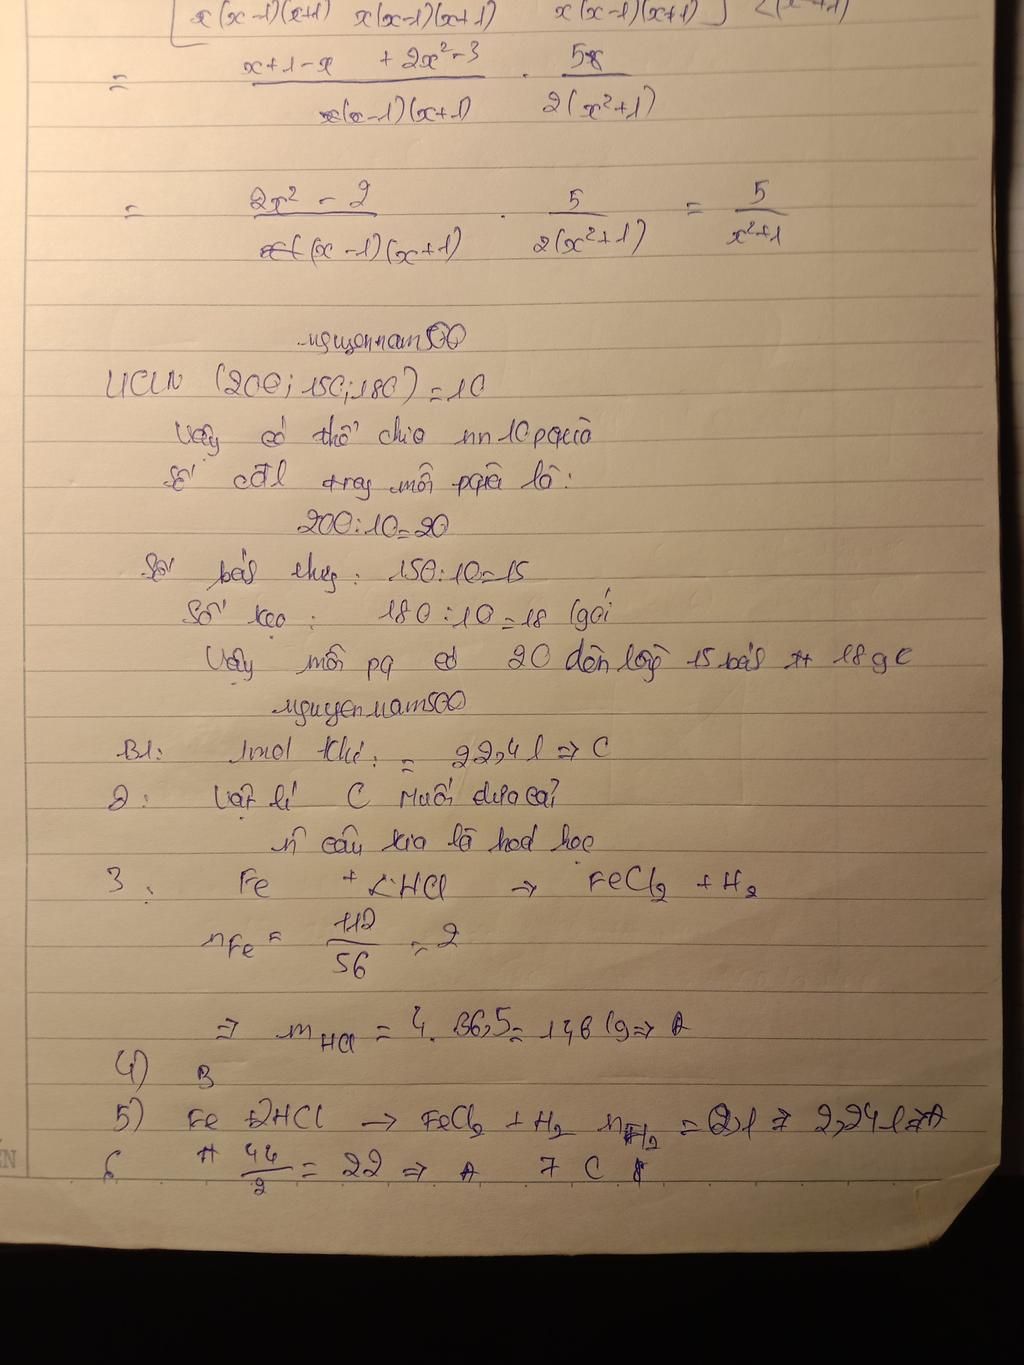 x(x-1)(x+1) x(x-1)(x+1) x(x-1)(x+1) ] 2(x²+1)
= (x+1-x + 2x²-3)/(x(x-1)(x+1)) . 5x/(2(x²+1))
= (2x² - 2)/((x-1)(x+1)) . 5/(2(x²+1)) = 5/(x²+1)
nguyennam500
ƯCLN (200; 150; 180) = 10
Vậy có thể chia nn 10 pquà
Số mỗi là:
200:10=20
Số bán : 150:10=15
Số kẹo : 180:10=18 (gói
Vậy mỗi pq có 20 15 bán 18 g
nguyennam500
B1: 1mol khí : = 22,4 l ⇒ C
2: Vật lí C Muối dưa cải
câu kia là hoá học
3: Fe + 2HCl → FeCl₂ + H₂
nFe = 112/56 = 2
⇒ mHCl = 4. 36,5 = 146 (g ⇒ A
4) B
5) Fe +2HCl → FeCl₂ + H₂ nH₂ = 0,1 ⇒ 2,24 l ⇒ A
6 44/2 = 22 ⇒ A 7 C